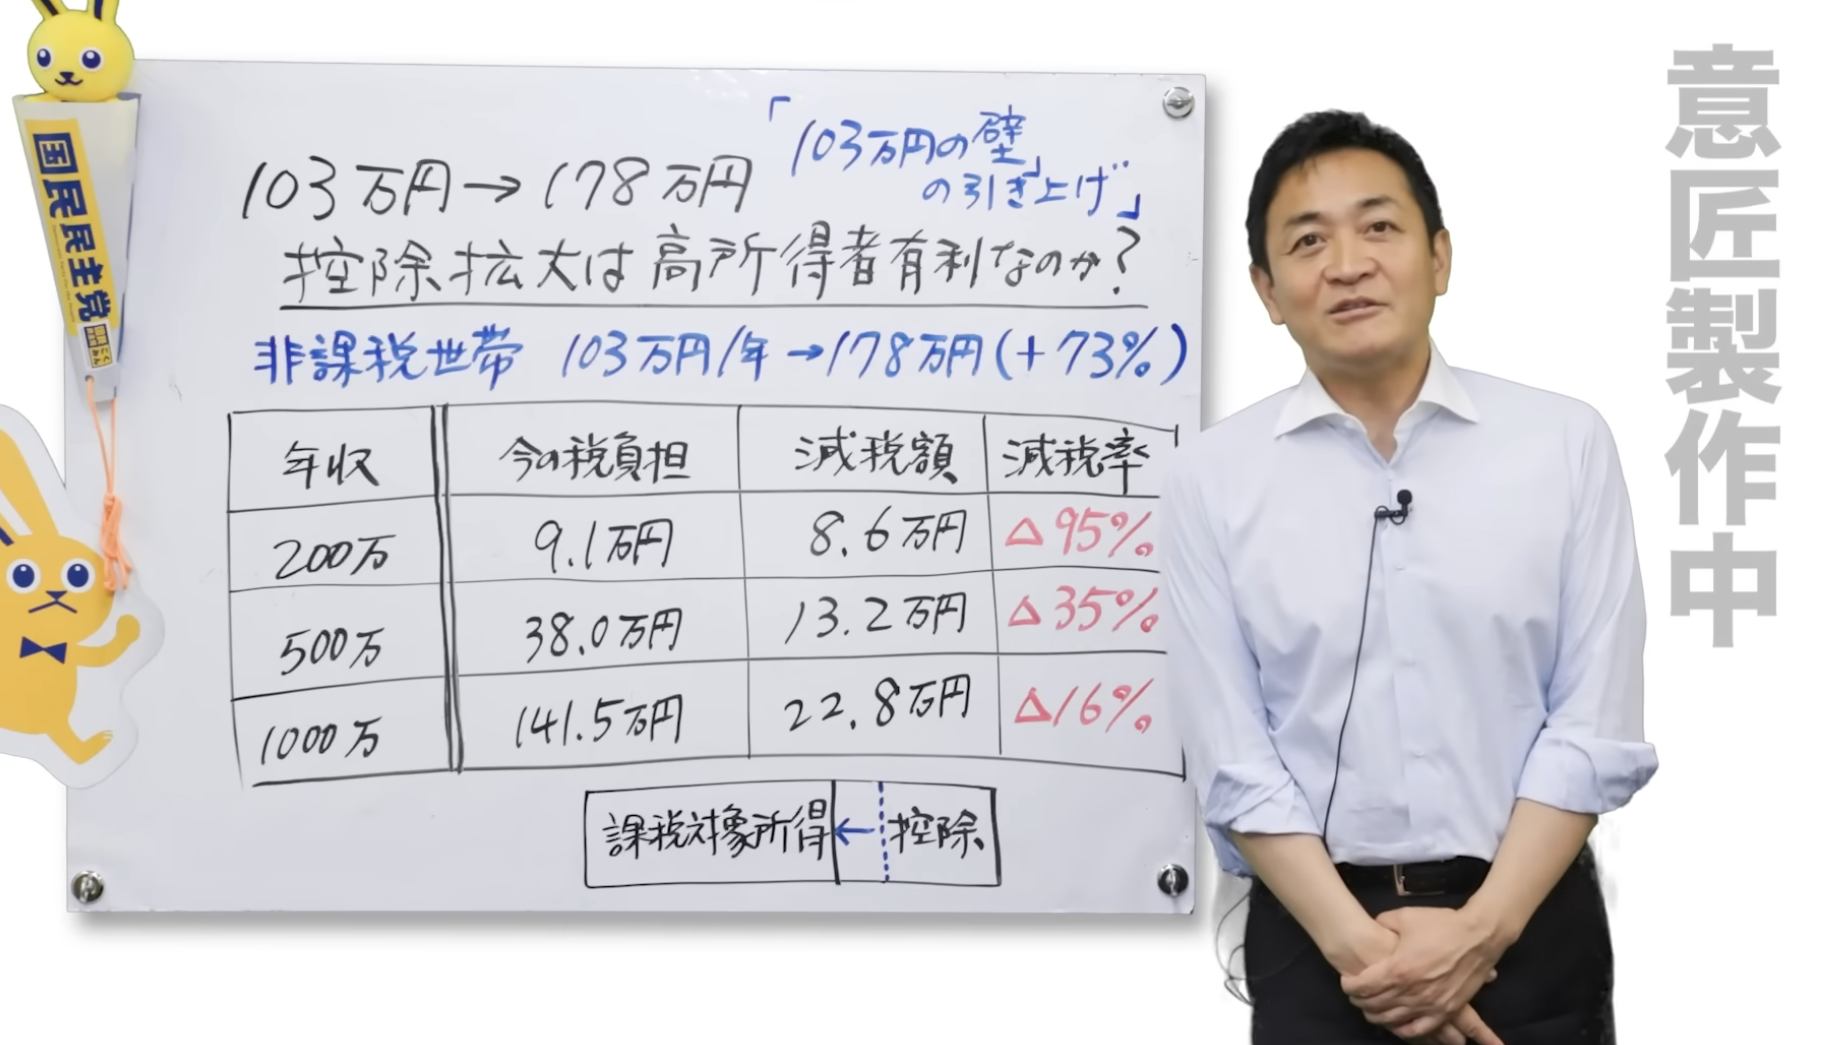 国民民主党
103万円→178万円
「103万円の壁」
の引き上げ」
控除拡大は高所得者有利なのか?
非課税世帯 103万円/年→178万円(+73%)
年収 今の税負担 減税額 減税率
200万 9.1万円 8.6万円 △95%
500万 38.0万円 13.2万円 △35%
1000万 141.5万円 22.8万円 △16%
課税対象所得 ← 控除
意匠製作中